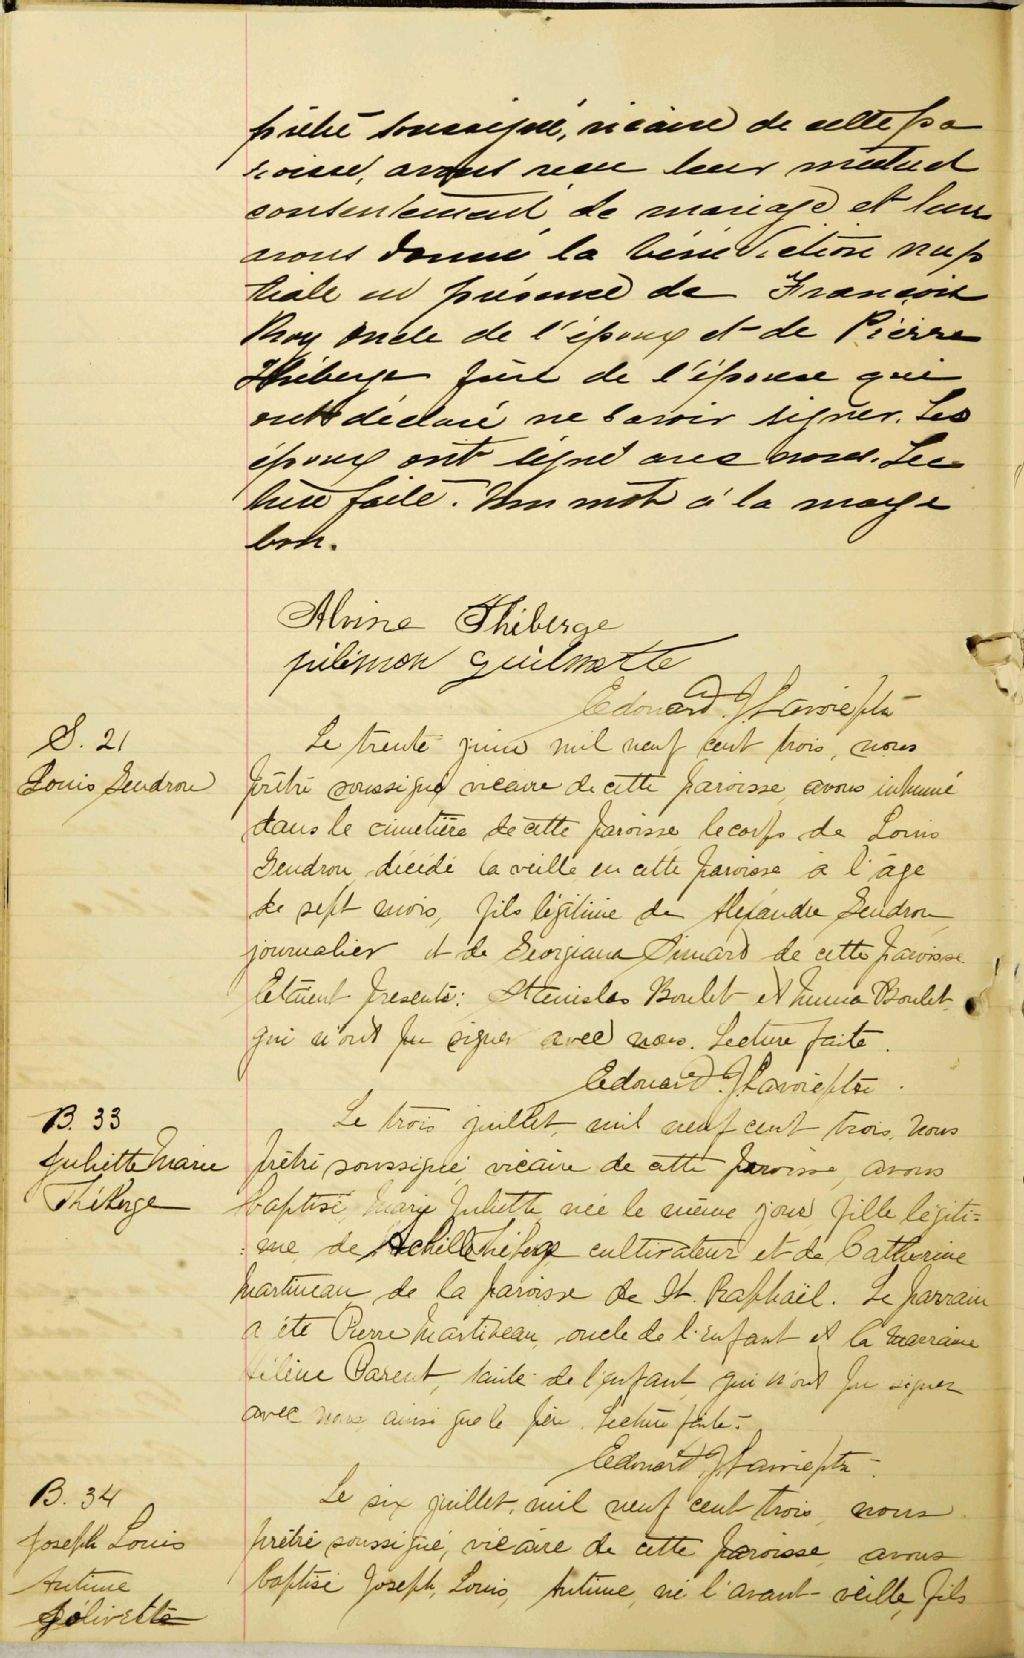 prêtre soussigné, vicaire de cette pa
roisse, avons reçu leur mutuel
consentement de mariage et leur
avons donné la bénédiction nup
tiale en présence de François
Roy oncle de l'époux et de Pierre
Théberge frère de l'épouse qui
ont déclaré ne savoir signer. Les
époux ont signé avec nous. Lec
ture faite. Un mot à la marge
bon.
Alvine Théberge
philémon guilmette
Edouard J Lavoie ptre
S. 21
Louis Gendron
Le trente juin mil neuf cent trois, nous
prêtre soussigné vicaire de cette paroisse, avons inhumé
dans le cimetière de cette paroisse le corps de Louis
Gendron, décédé la veille en cette paroisse à l'âge
de sept mois, fils légitime de Alexandre Gendron
journalier et de Georgiana Simard de cette paroisse
Etaient présents: Stanislas Boulet et Boulet
qui n'ont pu signer avec nous. Lecture faite.
Edouard J Lavoie ptre.
B. 33
Juliette Marie
Théberge
Le trois juillet, mil neuf cent trois, nous
prêtre soussigné, vicaire de cette paroisse, avons
baptisé, Marie Juliette née le même jour fille légiti=
=me de Achille Théberge cultivateur et de Catherine
Martineau de la paroisse de St. Raphaël. Le parrain
a été Pierre Martineau, oncle de l'enfant et la marraine
Hélène Parent, tante de l'enfant qui n'ont pu signer
avec nous, ainsi que le père. Lecture faite.
Edouard J Lavoie ptre.
B. 34
Joseph Louis
Antime
Jolivette
Le six juillet, mil neuf cent trois, nous
prêtre soussigné, vicaire de cette paroisse, avons
baptisé Joseph, Louis, Antime, né l'avant-veille, fils